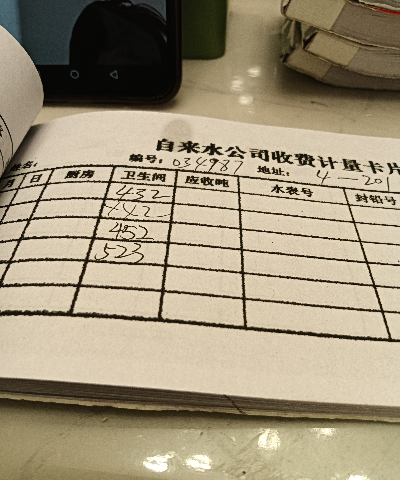 自来水公司收费计量卡片
编号: 034987 地址: 4-201
月 日 厨房 卫生间 应收吨 水表号 封铅号
432
442
452
523